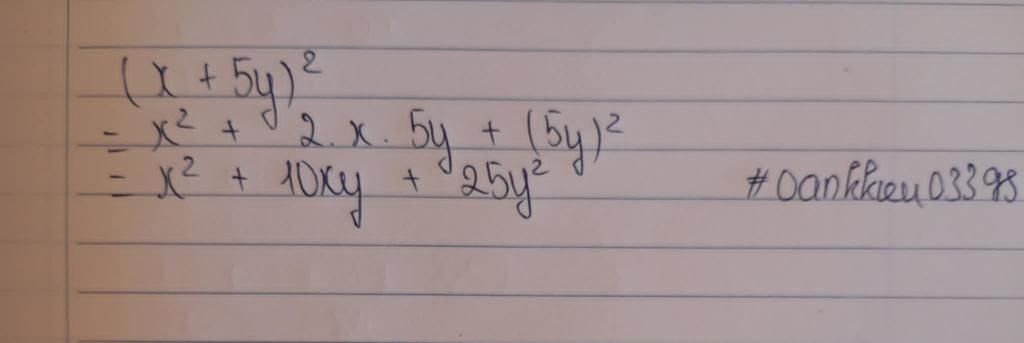 (x + 5y)²
= x² + 2.x.5y + (5y)²
= x² + 10xy + 25y² #Oankkieu03398